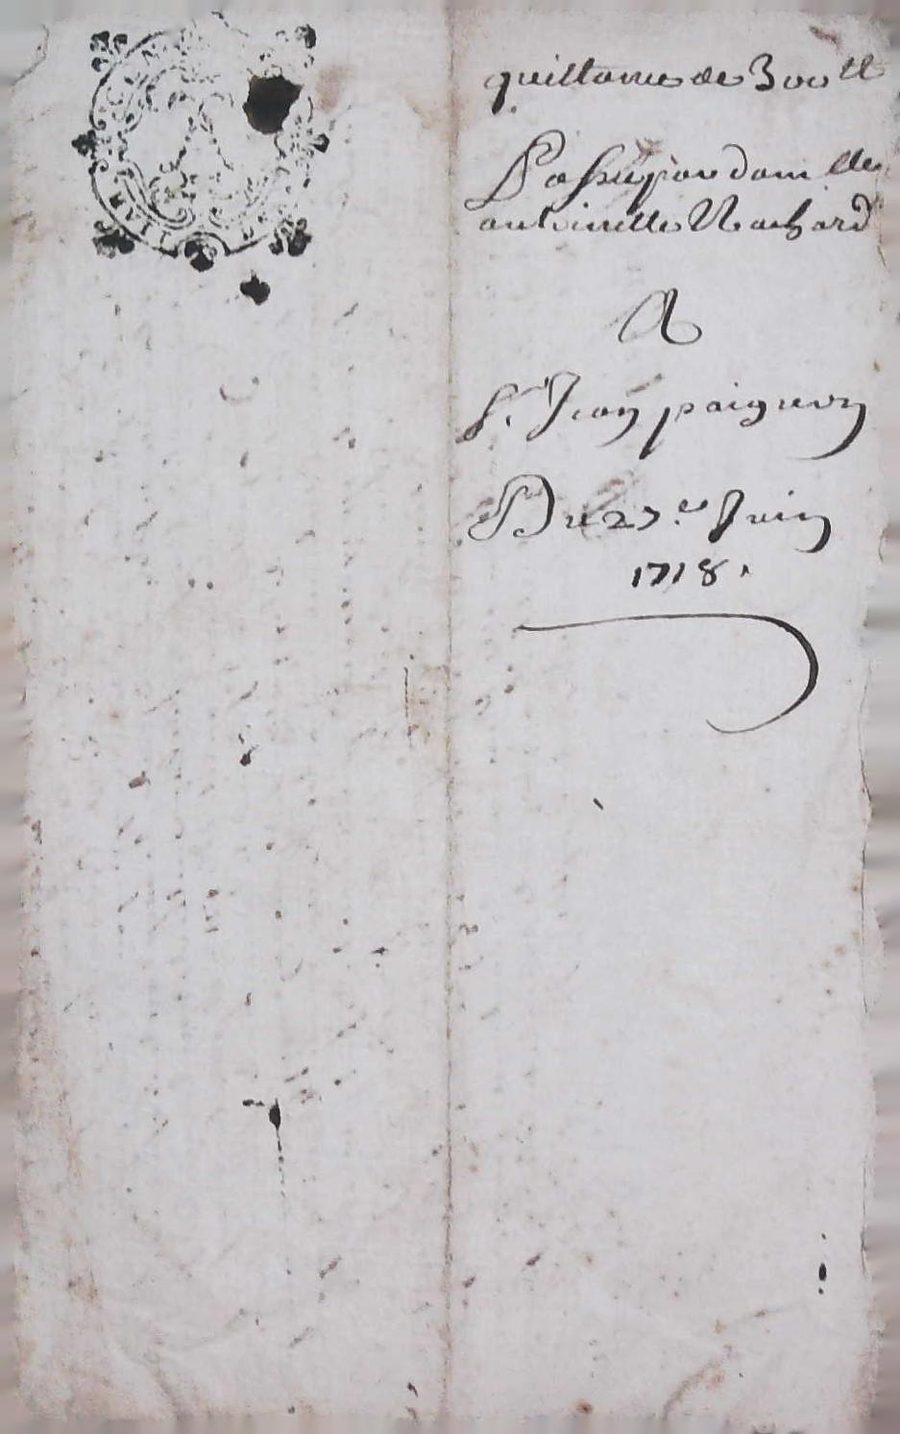 quittance de 300 lt
Passée par dam.lle
antoinette Rachard
A
S.r Jean paigneon
Du 27.e Juin
1718.